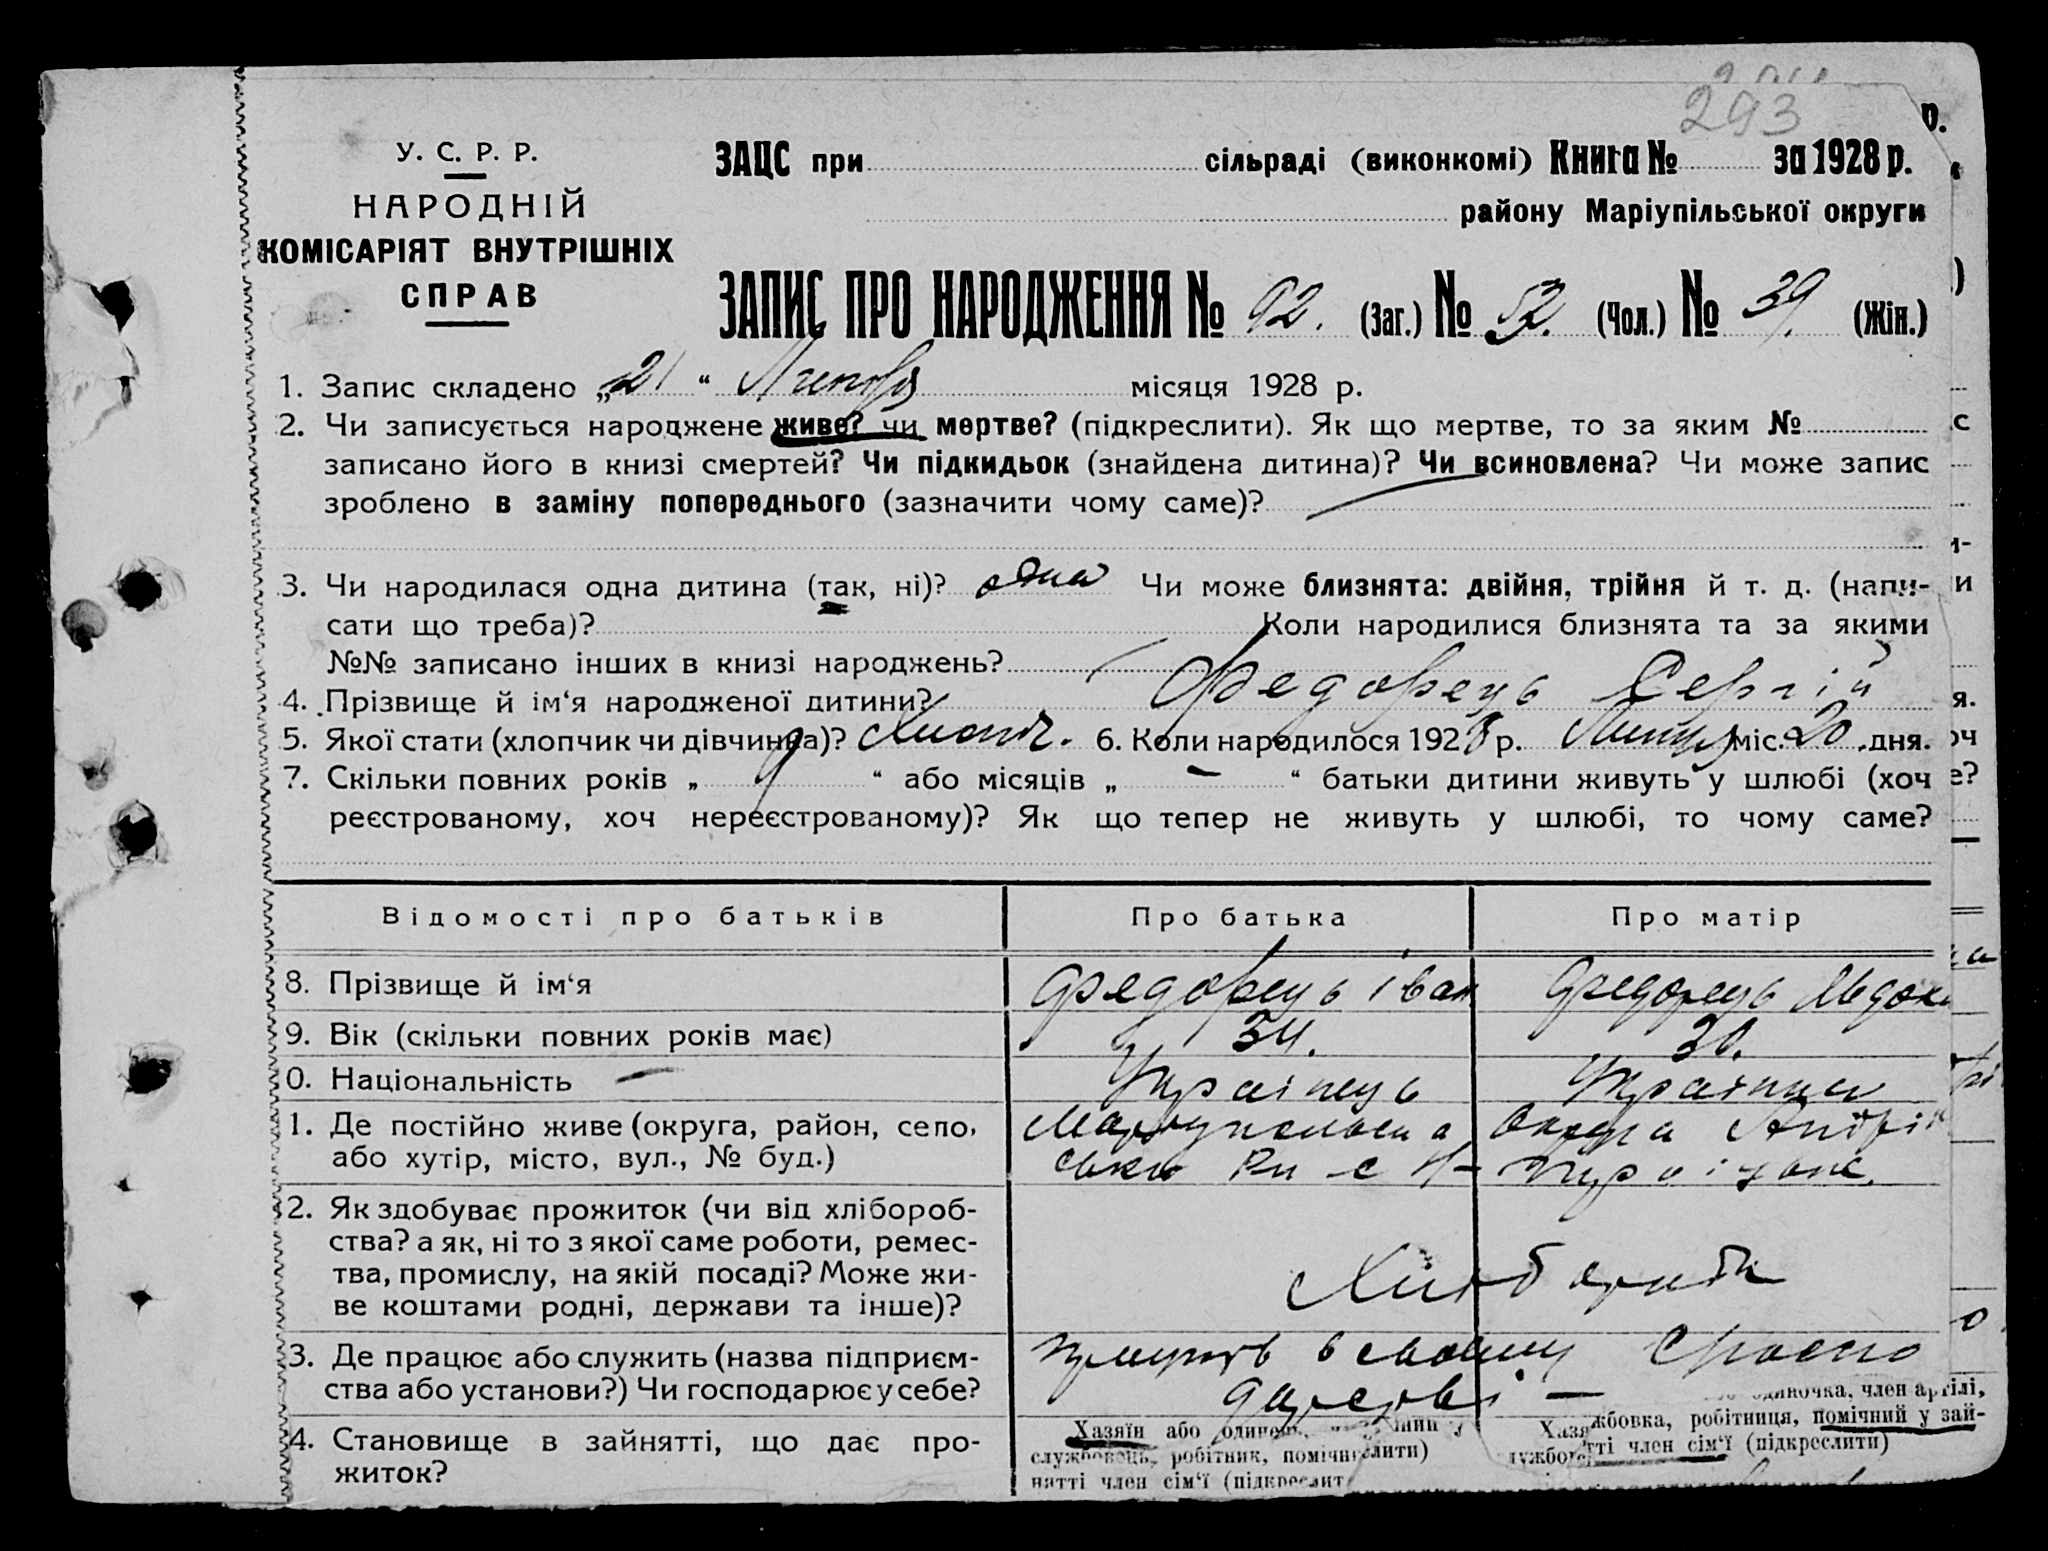 293
У. С. Р. Р.
НАРОДНІЙ
КОМІСАРІЯТ ВНУТРІШНІХ
СПРАВ
ЗАЦС при сільраді (виконкомі) Книга № за 1928 р.
району Маріупільської округи
ЗАПИС ПРО НАРОДЖЕННЯ № 92. (Заг.) № 52. (Чол.) № 39. (Жін.)
1. Запис складено „21“ місяця 1928 р.
2. Чи записується народжене живе? чи мертве? (підкреслити). Як що мертве, то за яким №
записано його в книзі смертей? Чи підкидьок (знайдена дитина)? Чи всиновлена? Чи може запис
зроблено в заміну попереднього (зазначити чому саме)?
3. Чи народилася одна дитина (так, ні)? одна Чи може близнята: двійня, трійня й т. д. (напи-
сати що треба)? Коли народилися близнята та за якими
№№ записано інших в книзі народжень?
4. Прізвище й ім‘я народженої дитини? Федорець Сергій
5. Якої стати (хлопчик чи дівчинка)? Хлопч. 6. Коли народилося 1928 р. міс. 20 дня.
7. Скільки повних років „ 9 “ або місяців „ — “ батьки дитини живуть у шлюбі (хоч
реєстрованому, хоч нереєстрованому)? Як що тепер не живуть у шлюбі, то чому саме?
Відомості про батьків Про батька Про матір
8. Прізвище й ім‘я Федорець Іван Федорець
9. Вік (скільки повних років має) 34. 30.
0. Національність Українець Українка
1. Де постійно живе (округа, район, село, Маріупольська округа
або хутір, місто, вул., № буд.)
2. Як здобуває прожиток (чи від хлібороб-
ства? а як, ні то з якої саме роботи, ремес-
тва, промислу, на якій посаді? Може жи-
ве коштами родні, держави та інше)?
3. Де працює або служить (назва підприєм- в своему
ства або установи?) Чи господарює у себе?
4. Становище в зайнятті, що дає про-
житок?
Хазяїн або одинець,
службовець, робітник, поміч
нятті член сім‘ї (підкреслит
одиночка, член артілі,
жбовка, робітниця, помічний у зай-
тті член сім‘ї (підкреслити)